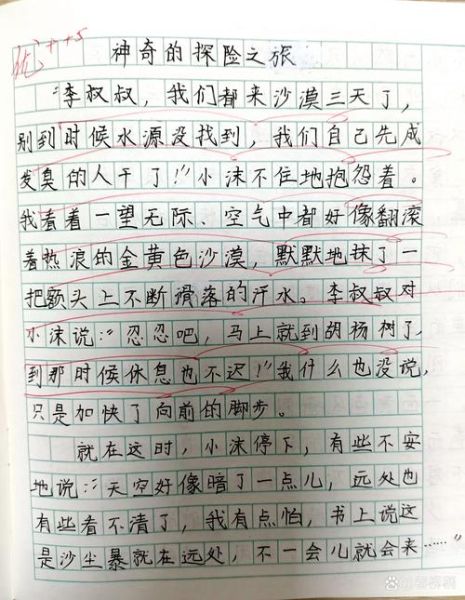 优++5
神奇的探险之旅
“李叔叔，我们都来沙漠三天了，
别到时候水源没找到，我们自己先成
发臭的人干了！”小沫不住地抱怨着。
我看着一望无际、空气中都好像翻滚
着热浪的金黄色沙漠，默默地抹了一
把额头上不断滑落的汗水。李叔叔对
小沫说：“忍忍吧，马上就到胡杨树了，
到那时候休息也不迟！”我什么也没说，
只是加快了向前的脚步。
就在这时，小沫停下，有些不安
地说：“天空好像暗了一点儿，远处也
有些看不清了，我有点怕，书上说这
是沙尘暴就在远处，不一会儿就会来……”